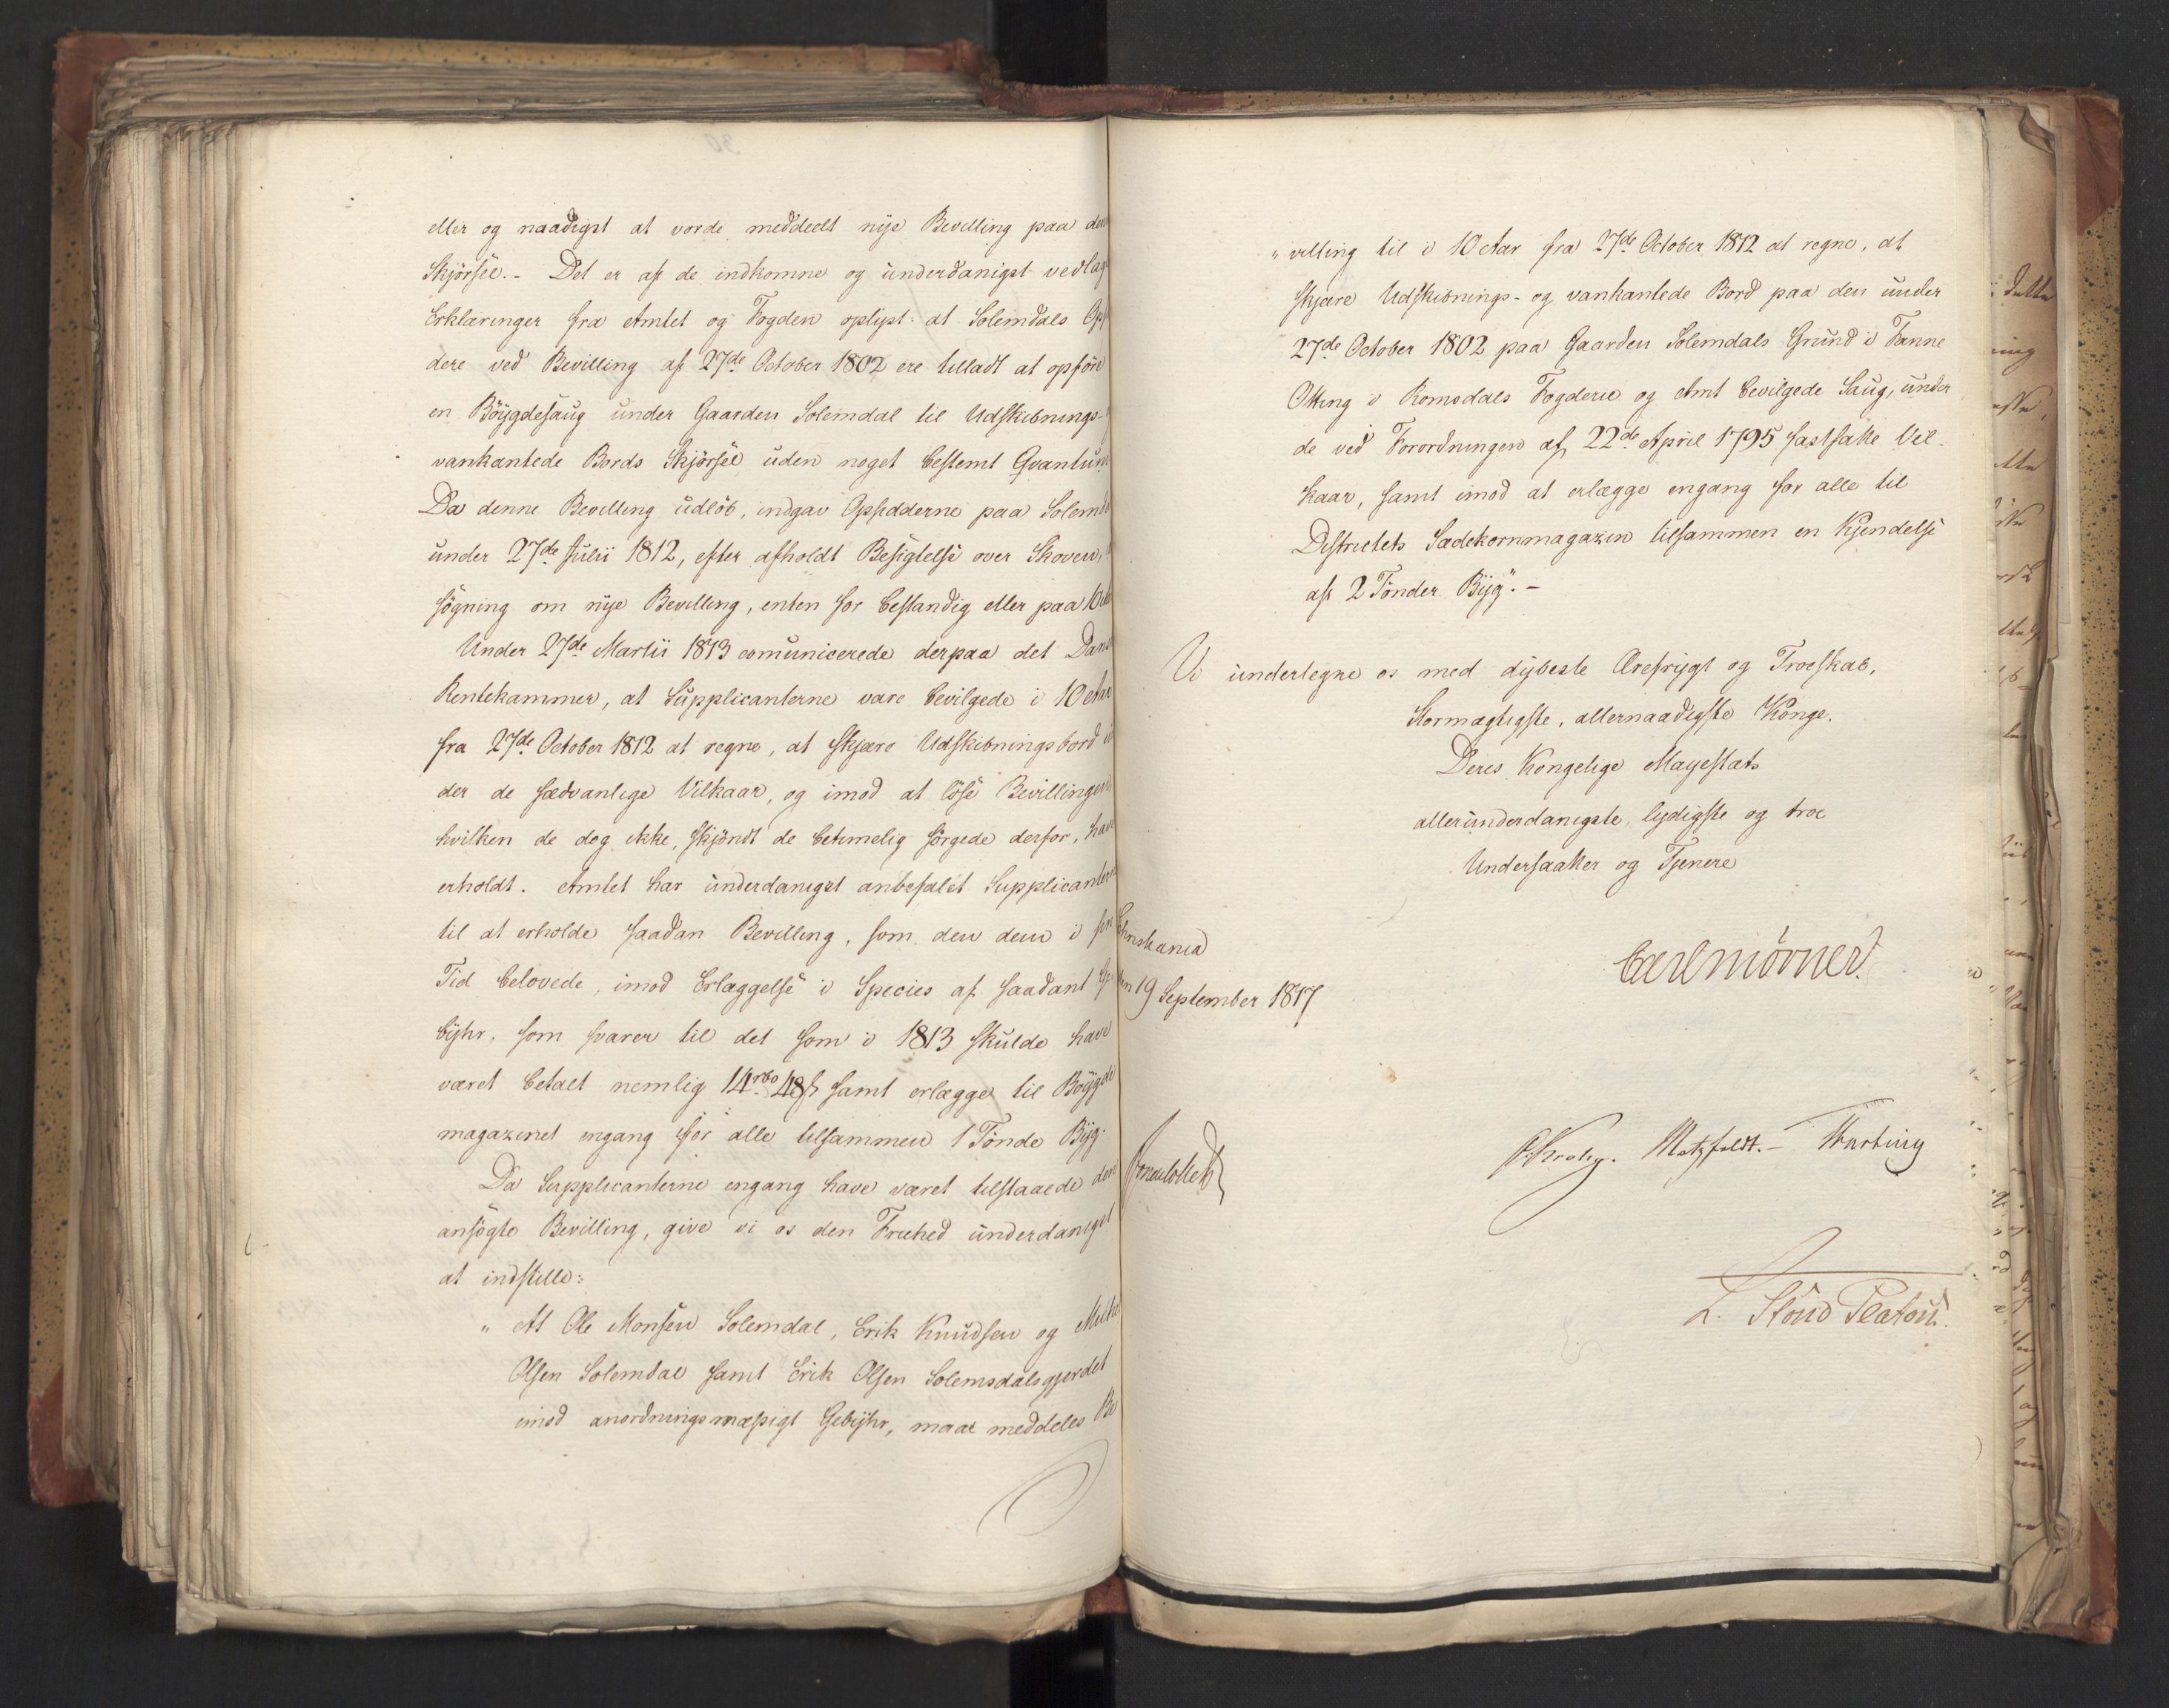 eller og naadigst at vorde meddeelt nye Bevilling paa den
Skjörsel. - Det er af de indkomne og underdanigst vedlag
Erklæringer fra Amtet og Fogden oplyst: at Solemdals Op
dere ved Bevilling af 27de October 1802 ere tilladt at opföre
en Böygdesaug under Gaarden Solemdal til Udskibnings-
vankantede Bords Skjörsel uden noget bestemt Qvantum
Da denne Bevilling udlöb, indgav Opsidderne paa Solemd
under 27de Julii 1812, efter afholdt Besigtelse over Skoven,
sögning om nye Bevilling, enten for bestandig eller paa 10
Under 27de Martii 1813 comunicerede derpaa det Dans
Rentekammer, at Supplicanterne vare bevilgede i 10 Aar
fra 27de October 1812 at regne, at skjære Udskibningsbord
der de sædvanlige Vilkaar, og imod at löse Bevillingen
hvilken de dog ikke, skjöndt de betimelig sörgede derfor, have
erholdt. Amtet har underdanigst anbefalet Supplicantern
til at erholde saadan Bevilling, som den dem i
Tid belovede, imod Erlæggelse i Species af saadant
byhr, som svarer til det som i 1813 skulde have
været betalt nemlig 14 rbd 48 s samt erlægge til Böygde
magazinet engang for alle tilsammen 1 Tönde Byg.
Da Supplicanterne engang have været tilstaaede den
ansögte Bevilling, give vi os den Friehed underdanigst
at indstille:
" At Ole Monsen Solemdal, Erik Knudsen og
Olsen Solemdal samt Erik Olsen Solemsdalsgjerdet
imod anordningsmæssigt Gebyhr, maae meddeles Be
" villing til i 10 Aar fra 27de October 1812 at regne, at
skjære Udskibnings- og vankantede Bord paa den under
27de October 1802 paa Gaarden Solemdals Grund i Fanne
Otting i Romsdals Fogderie og Amt bevilgede Saug, under
de ved Forordningen af 22de April 1795 fastsatte Vil-
kaar, samt imod at erlægge engang for alle til
Districtets Sædekornmagazin tilsammen en Kjendelse
af 2 Tönder Byg". -
Vi undertegne os med dybeste Ærefrygt og Troeskab,
Stormægtigste, allernaadigste Konge.
Deres Kongelige Mayestæts
allerunderdanigste, lydigste og troe
Undersaatter og Tjenere
Christiania
den 19 September 1817
Carl Mörner
Sommerfeldt
P. Krohg. Motzfeldt. -
L. Stoud Platou.